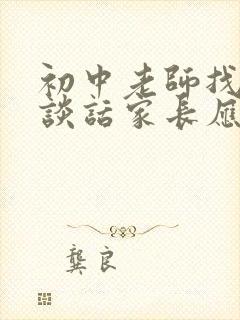 初中老師找
談話家長應
龔良